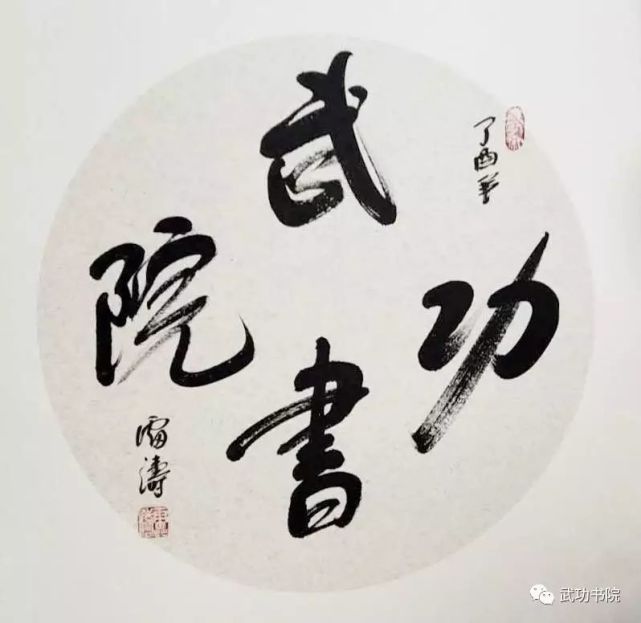 武功書院
丁酉年
濤
武功书院